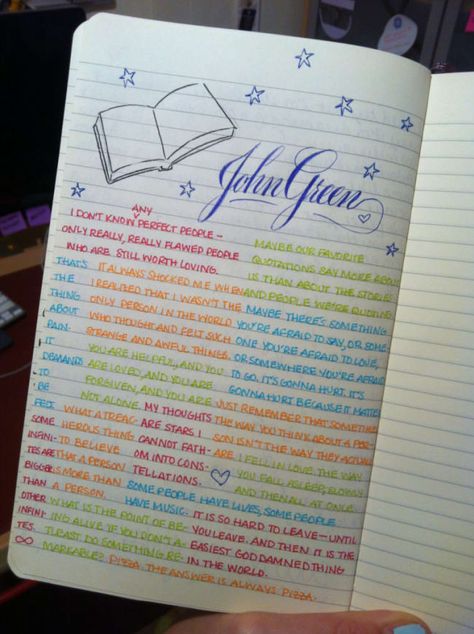 John Green
I DON'T KNOW ANY PERFECT PEOPLE –
ONLY REALLY, REALLY FLAWED PEOPLE
WHO ARE STILL WORTH LOVING.
MAYBE OUR FAVORITE
QUOTATIONS SAY MORE ABOUT
US THAN ABOUT THE STORIES
AND PEOPLE WE'RE QUOTING
THAT'S
THE
THING
ABOUT
PAIN-
IT
DEMANDS
TO
BE
FELT.
IT ALWAYS SHOCKED ME WHEN
I REALIZED THAT I WASN'T THE
ONLY PERSON IN THE WORLD
WHO THOUGHT AND FELT SUCH
STRANGE AND AWFUL THINGS.
MAYBE THERE'S SOMETHING
YOU'RE AFRAID TO SAY, OR SOME-
ONE YOU'RE AFRAID TO LOVE,
OR SOMEWHERE YOU'RE AFRAID
TO GO. IT'S GONNA HURT. IT'S
GONNA HURT BECAUSE IT MATTERS
YOU ARE HELPFUL, AND YOU
ARE LOVED, AND YOU ARE
FORGIVEN, AND YOU ARE
NOT ALONE.
JUST REMEMBER THAT SOMETIMES
THE WAY YOU THINK ABOUT A PER-
SON ISN'T THE WAY THEY ACTUALLY
ARE.
SOME
INFINI-
TIES ARE
BIGGER
THAN
OTHER
INFINI-
TES.
∞
WHAT A TREAC-
HEROUS THING
TO BELIEVE
THAT A PERSON
IS MORE THAN
A PERSON.
MY THOUGHTS
ARE STARS I
CANNOT FATH-
OM INTO CONS-
TELLATIONS.
I FELL IN LOVE THE WAY
YOU FALL ASLEEP, SLOWLY
AND THEN ALL AT ONCE.
SOME PEOPLE HAVE LIVES, SOME PEOPLE
HAVE MUSIC.
IT IS SO HARD TO LEAVE—UNTIL
YOU LEAVE. AND THEN IT IS THE
EASIEST GODDAMNED THING
IN THE WORLD.
WHAT IS THE POINT OF BE-
ING ALIVE IF YOU DON'T A-
TLEAST DO SOMETHING RE-
MARKABLE?
PIZZA. THE ANSWER IS ALWAYS PIZZA.